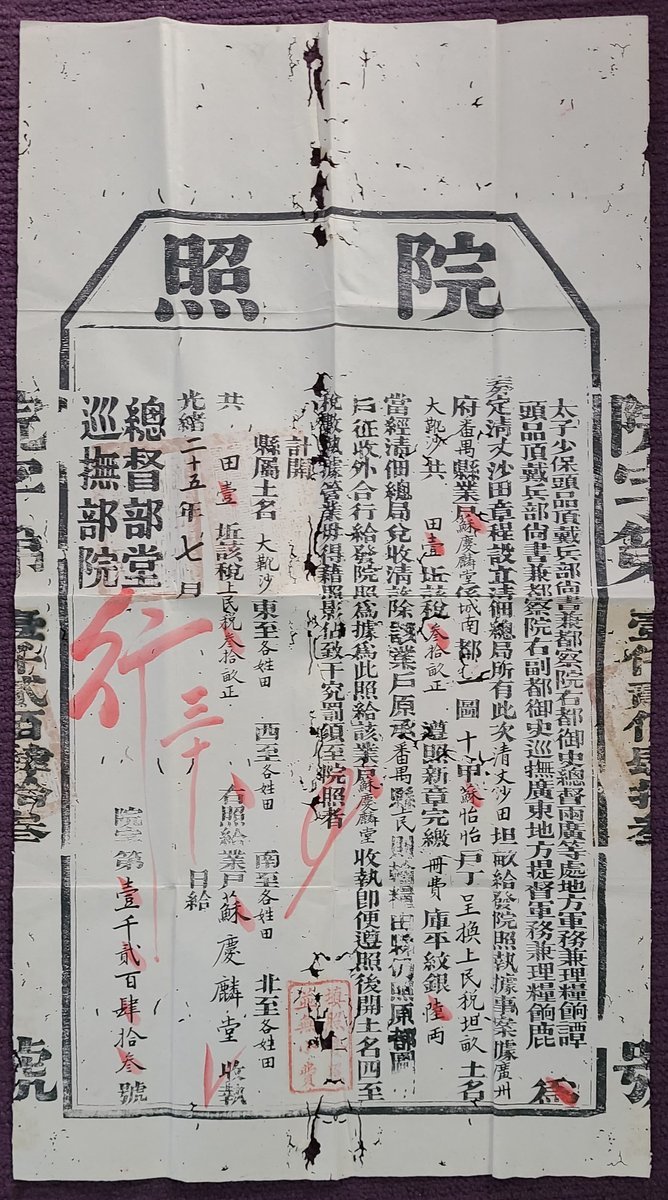 院照
太子少保頭品頂戴兵部尚書兼都察院右都御史總督兩廣等處地方軍務兼理糧餉譚
頭品頂戴兵部尚書兼都察院右副都御史巡撫廣東地方提督軍務兼理糧餉鹿 為
奏定清丈沙田章程設立清佃總局所有此次清丈沙田坦畝給發院照執據事案據廣州
府番禺縣業戶蘇慶麟堂係城南都 圖十甲蘇怡怡戶丁呈換上民稅坦畝土名
大靴沙共 田壹坵該稅叁拾畝正 遵照新章完繳冊費庫平紋銀陸兩
當經清佃總局兌收清發除該業戶原承番禺縣民 仍照原都圖
戶征收外合行給發院照為據為此照給該業戶蘇慶麟堂收執即便遵照後開土名四至
稅畝執據管業毋得藉照影佔致干究罰須至院照者
計開
縣屬土名大靴沙東至各姓田 西至各姓田 南至各姓田 北至各姓田
共 田壹坵該稅上民稅叁拾畝正
右照給業戶蘇慶麟堂收執
光緒二十五年七月 三十 日給
總督部堂
巡撫部院
行
院字第壹千貳百肆拾叁號
院字第
壹仟貳佰肆拾叁
號